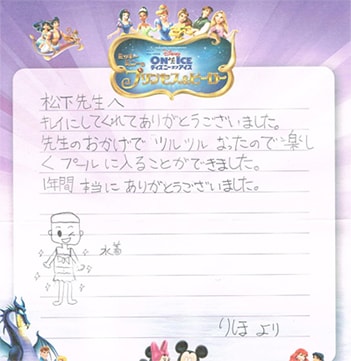 Disney
ON ICE
ディズニー・オン・アイス
プリンセス&ヒーロー
松下先生へ
キレイにしてくれてありがとうございました。
先生のおかげで ツルツル なったので楽し
く プールに入ることができました。
1年間 本当に ありがとうございました。
水着
りほ より